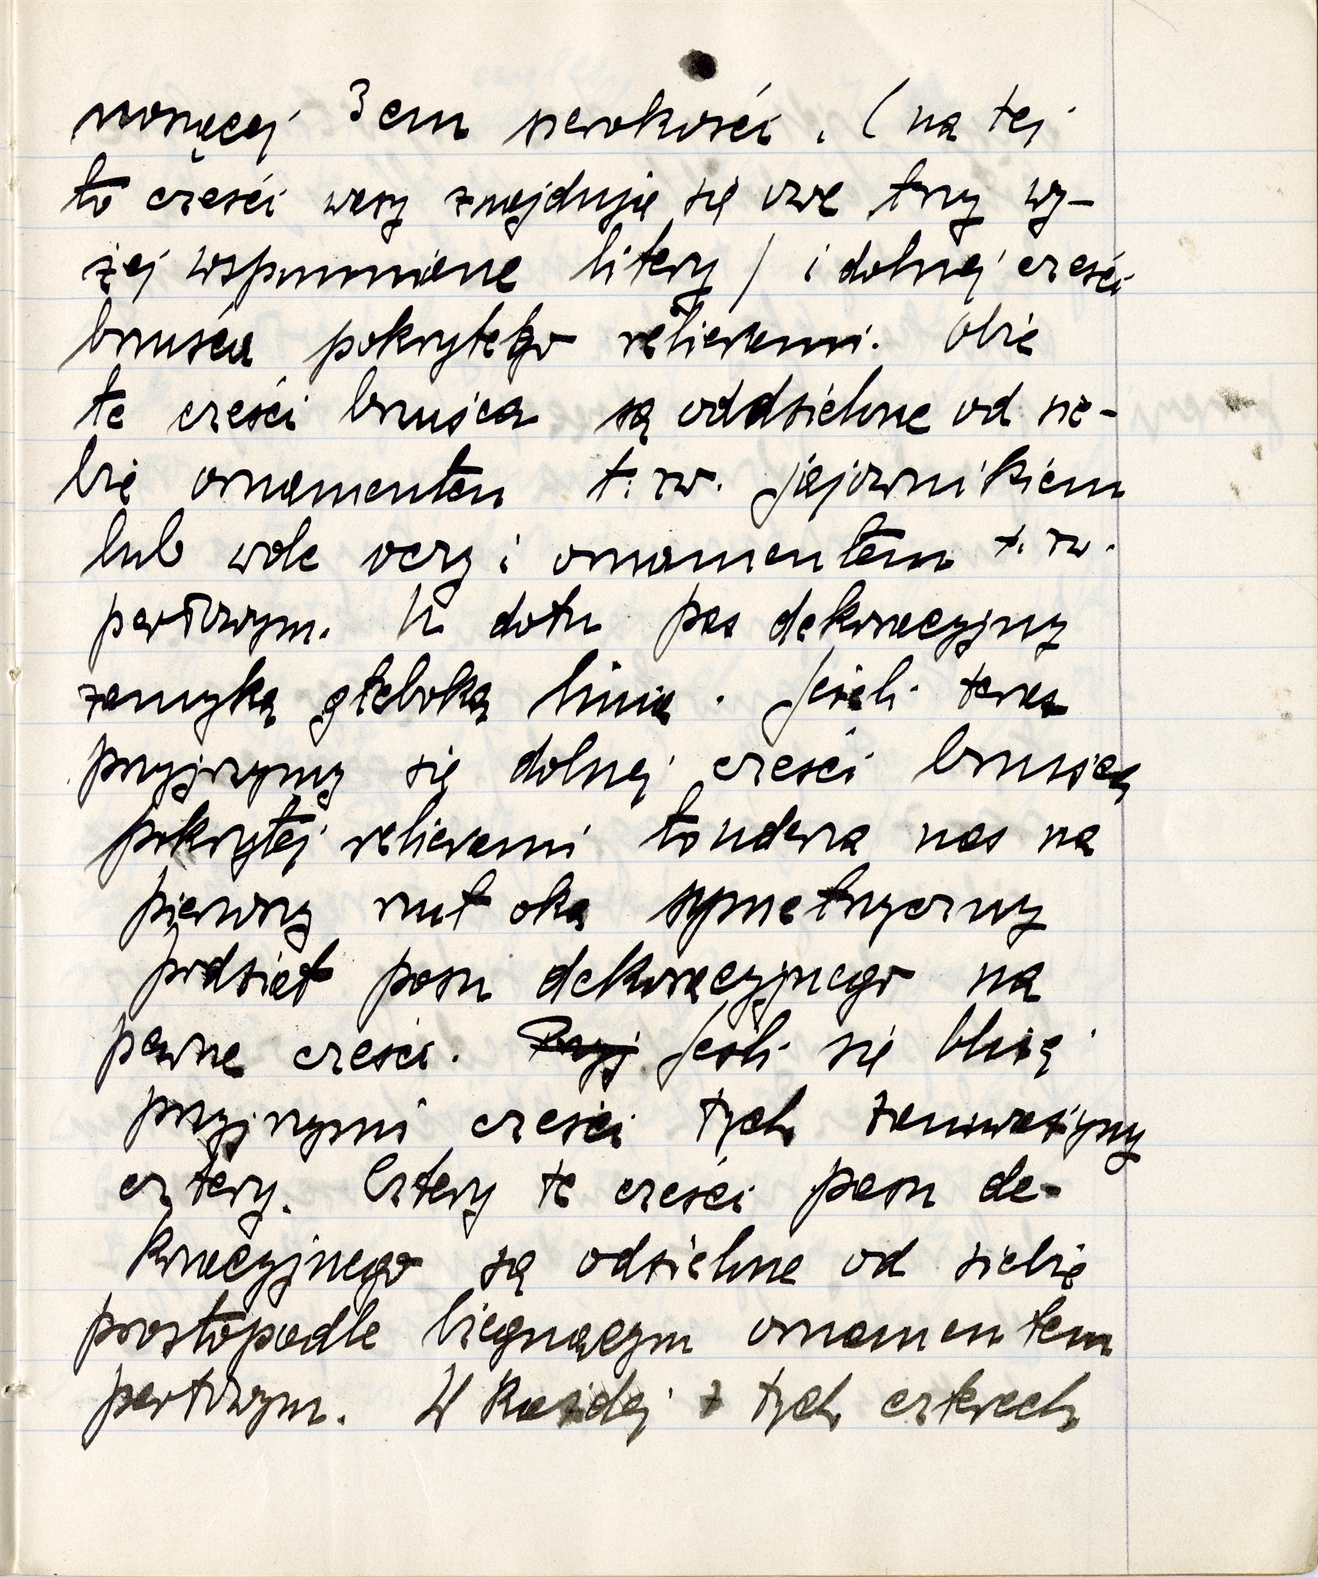 noszącej 3 cm szerokości. (na tej
to cześci wazy znajduję się owe trzy wy-
żej wspomniane litery / i dolnej cześci
brzuśca pokrytego reliefami. Obie
te cześci brzuśca są oddzielone od sie-
bie ornamentem t. zw. jajownikiem
lub wole oczy i ornamentem t. zw.
perłowym. U dołu pas dekoracyjny
zamyka głeboka linia. Jeżeli teraz
przyjrzymy się dolnej cześci brzuśca
pokrytej reliefami to uderza nas na
pierwszy rzut oka symetryczny
podział pasu dekoracyjnego na
pewne cześci. Przyj Jeśli się bliżej
przyjrzymy cześci tych zauważymy
cztery. Cztery te cześci pasu de-
koracyjnego są odzielone od siebie
prostopadle biegnącym ornamentem
perłowym. W każdej z tych czterech